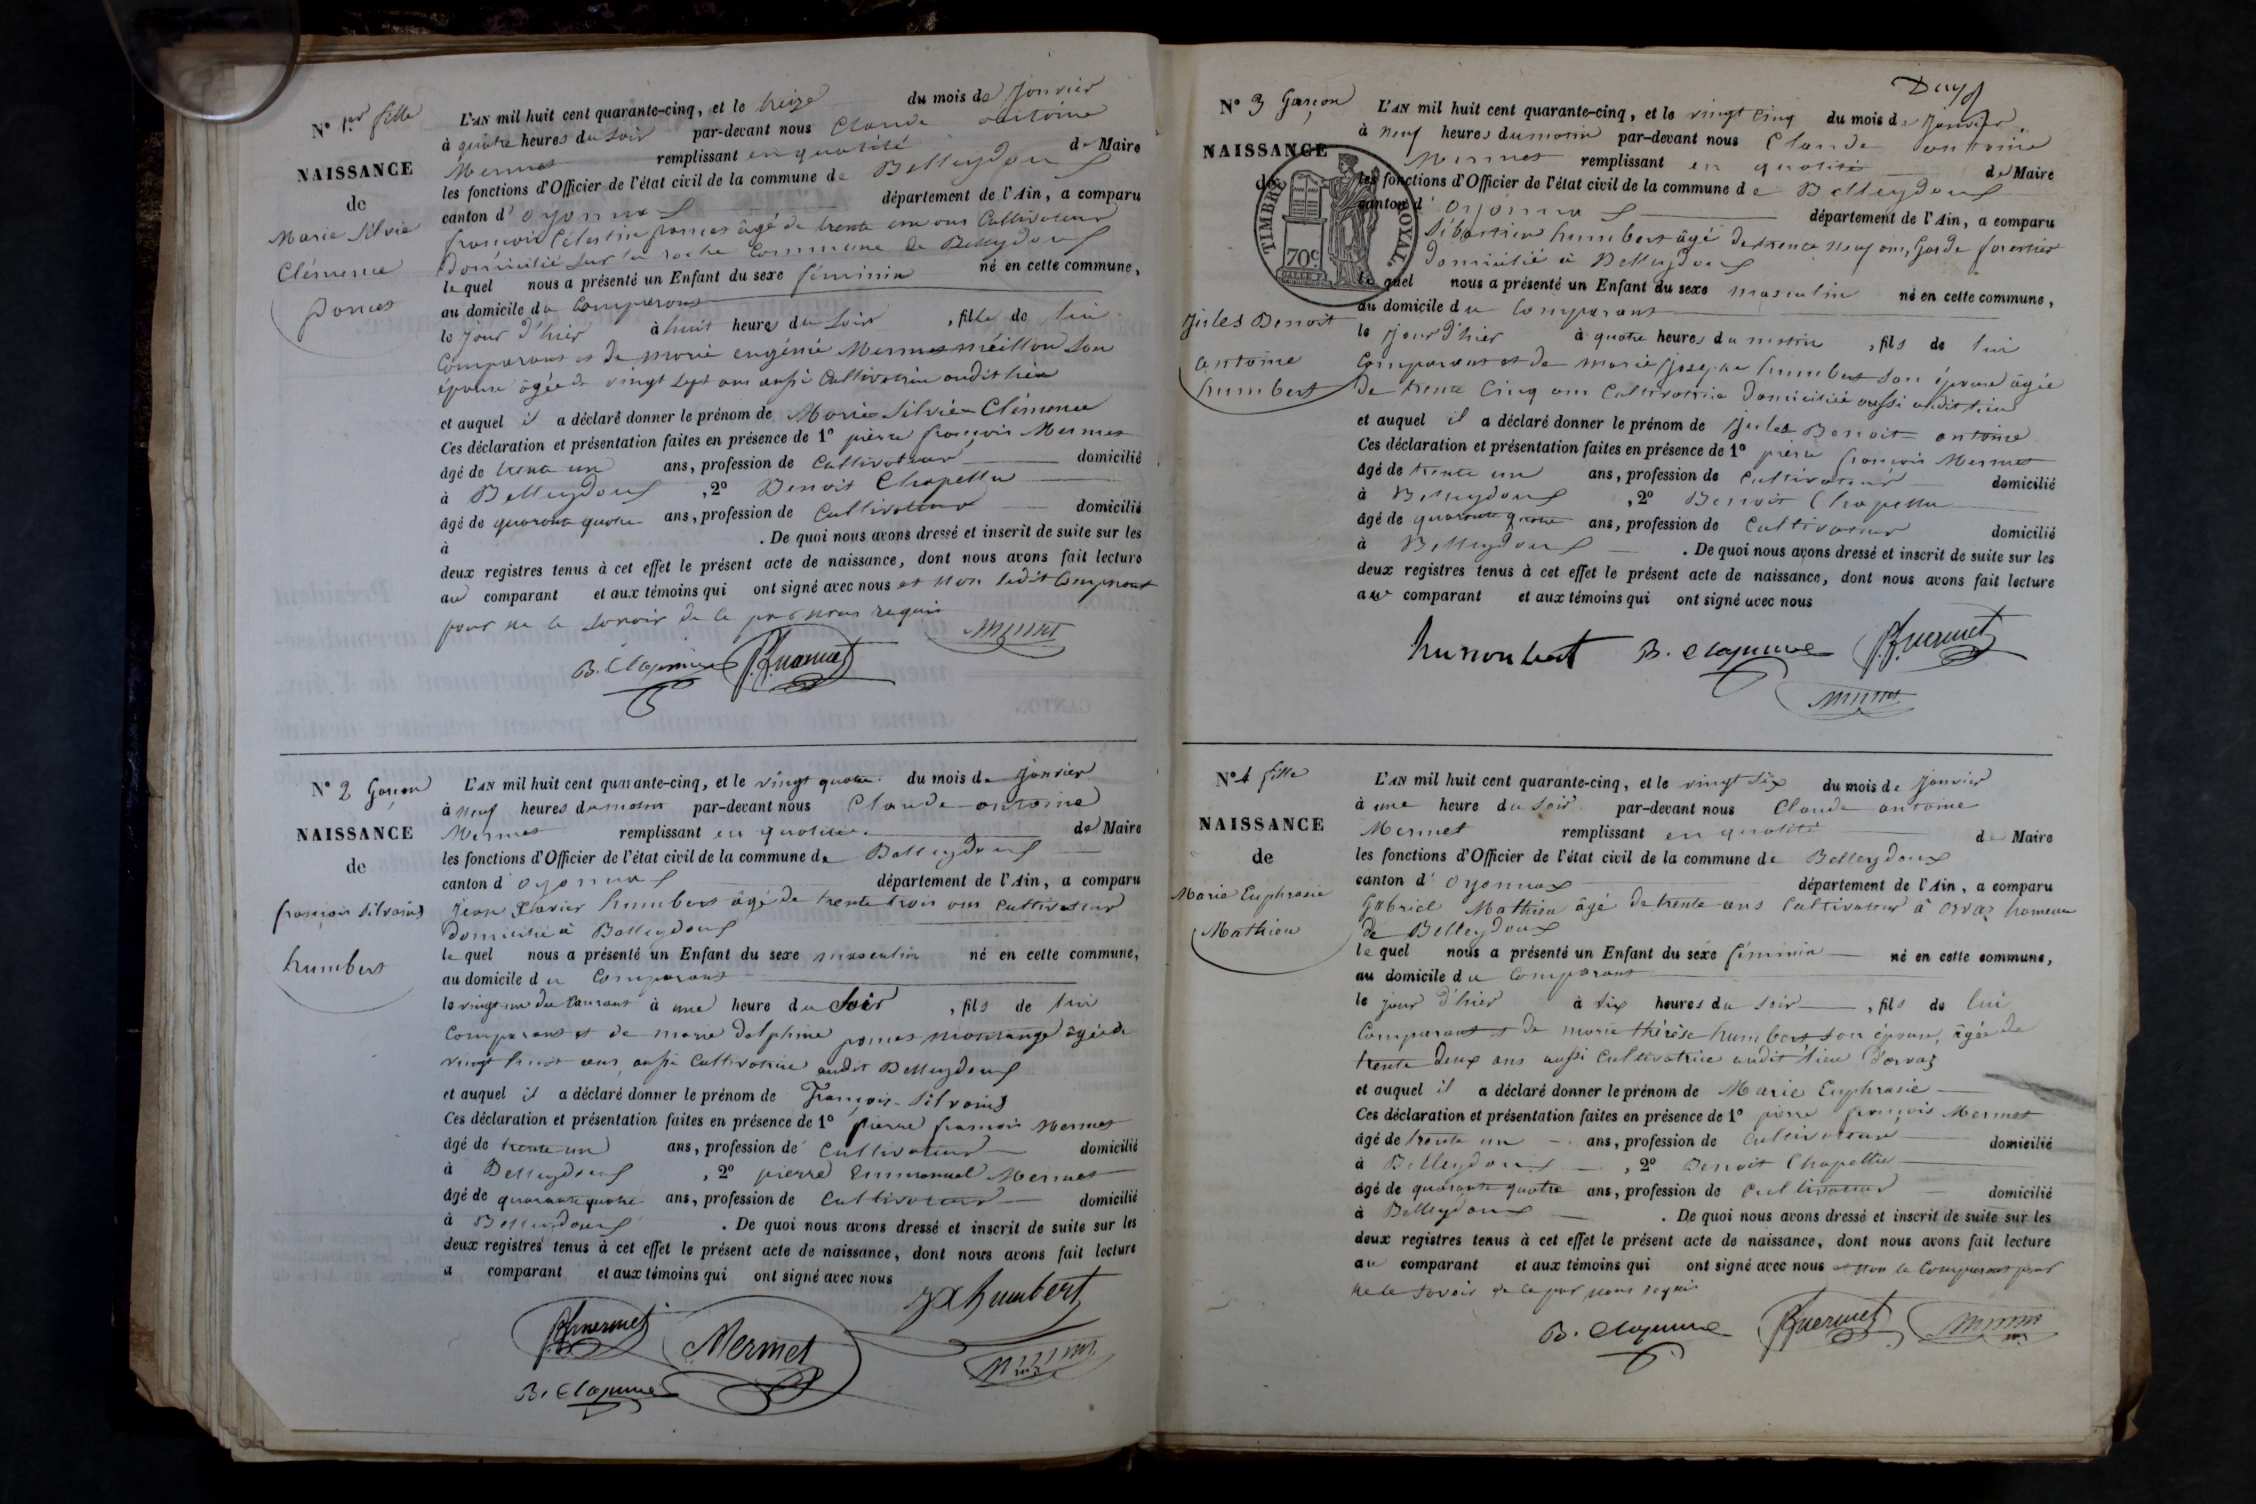 N° 1er fille
NAISSANCE
de
Marie Silvie
Clémence
Poncet
L'AN mil huit cent quarante-cinq, et le treize du mois de Janvier
à quatre heures du soir par-devant nous Claude antoine
Mermet remplissant en qualité de Maire
les fonctions d'Officier de l'état civil de la commune de Belleydoux
canton d' oyonnax département de l'Ain, a comparu
françois Célestin poncet âgé de trente un ans Cultivateur
Domicilié sur la roche Commune de Belleydoux
le quel nous a présenté un Enfant du sexe féminin né en cette commune,
au domicile du Comparant
le jour d'hier à huit heures du soir , fille de lui
Comparant et de marie eugénie Mermet méillon son
épouse âgée de vingt sept ans aussi Cultivatrice audit lieu
et auquel il a déclaré donner le prénom de Marie Silvie Clémence
Ces déclaration et présentation faites en présence de 1° pierre françois Mermet
âgé de trente un ans, profession de Cultivateur domicilié
à Belleydoux , 2° Benoit Chapellu
âgé de quarante quatre ans, profession de Cultivateur domicilié
à . De quoi nous avons dressé et inscrit de suite sur les
deux registres tenus à cet effet le présent acte de naissance, dont nous avons fait lecture
au comparant et aux témoins qui ont signé avec nous et non ledit Comparant
pour ne le savoir de ce par nous requis
N° 2 Garçon
NAISSANCE
de
françois Silvain
humbert
L'AN mil huit cent quarante-cinq, et le vingt quatre du mois de Janvier
à neuf heures du matin par-devant nous Claude antoine
Mermet remplissant en qualité de Maire
les fonctions d'Officier de l'état civil de la commune de Belleydoux
canton d' oyonnax département de l'Ain, a comparu
Jean Xavier humbert âgé de trente trois ans Cultivateur
Domicilié à Belleydoux
le quel nous a présenté un Enfant du sexe masculin né en cette commune,
au domicile du Comparant
le vingt un du Courant à une heure du Soir , fils de lui
Comparant et de marie delphine poncet montange âgée de
vingt huit ans, aussi Cultivatrice audit Belleydoux
et auquel il a déclaré donner le prénom de François Silvain
Ces déclaration et présentation faites en présence de 1° pierre françois Mermet
âgé de trente un ans, profession de Cultivateur domicilié
à Belleydoux , 2° pierre Emmanuel Mermet
âgé de quarante quatre ans, profession de Cultivateur domicilié
à Belleydoux . De quoi nous avons dressé et inscrit de suite sur les
deux registres tenus à cet effet le présent acte de naissance, dont nous avons fait lecture
a comparant et aux témoins qui ont signé avec nous
JX humbert
Mermet
N° 3 Garçon
NAISSANCE
de
TIMBRE ROYAL.
70c
Jules Benoit
antoine
humbert
L'AN mil huit cent quarante-cinq, et le vingt cinq du mois de Janvier
à neuf heures du matin par-devant nous Claude antoine
Mermet remplissant en qualité de Maire
les fonctions d'Officier de l'état civil de la commune de Belleydoux
canton d' oyonnax département de l'Ain, a comparu
Sébastien humbert âgé de trente neuf ans, Garde forestier
Domicilié à Belleydoux
le quel nous a présenté un Enfant du sexe masculin né en cette commune,
au domicile du Comparant
le jour d'hier à quatre heures du matin , fils de lui
Comparant et de marie humbert son épouse âgée
de trente Cinq ans Cultivatrice Domiciliée aussi audit lieu
et auquel il a déclaré donner le prénom de Jules Benoit antoine
Ces déclaration et présentation faites en présence de 1° pierre françois Mermet
âgé de trente un ans, profession de Cultivateur domicilié
à Belleydoux , 2° Benoit Chapellu
âgé de quarante quatre ans, profession de Cultivateur domicilié
à Belleydoux . De quoi nous avons dressé et inscrit de suite sur les
deux registres tenus à cet effet le présent acte de naissance, dont nous avons fait lecture
au comparant et aux témoins qui ont signé avec nous
N° 4 fille
NAISSANCE
de
Marie Euphrasie
Mathieu
L'AN mil huit cent quarante-cinq, et le vingt six du mois de Janvier
à une heure du soir par-devant nous Claude antoine
Mermet remplissant en qualité de Maire
les fonctions d'Officier de l'état civil de la commune de Belleydoux
canton d' Oyonnax département de l'Ain, a comparu
Gabriel Mathieu âgé de trente ans Cultivateur à Orvaz hameau
de Belleydoux
le quel nous a présenté un Enfant du sexe féminin né en cette commune,
au domicile du Comparant
le jour d'hier à six heures du soir , fils de lui
Comparant et de marie thérèse humbert son épouse, âgée de
trente deux ans aussi Cultivatrice audit lieu d'orvaz
et auquel il a déclaré donner le prénom de Marie Euphrasie
Ces déclaration et présentation faites en présence de 1° pierre françois Mermet
âgé de trente un ans, profession de Cultivateur domicilié
à Belleydoux , 2° Benoit Chapellu
âgé de quarante quatre ans, profession de Cultivateur domicilié
à Belleydoux . De quoi nous avons dressé et inscrit de suite sur les
deux registres tenus à cet effet le présent acte de naissance, dont nous avons fait lecture
au comparant et aux témoins qui ont signé avec nous et non le Comparant pour
ne le savoir de ce par nous requis